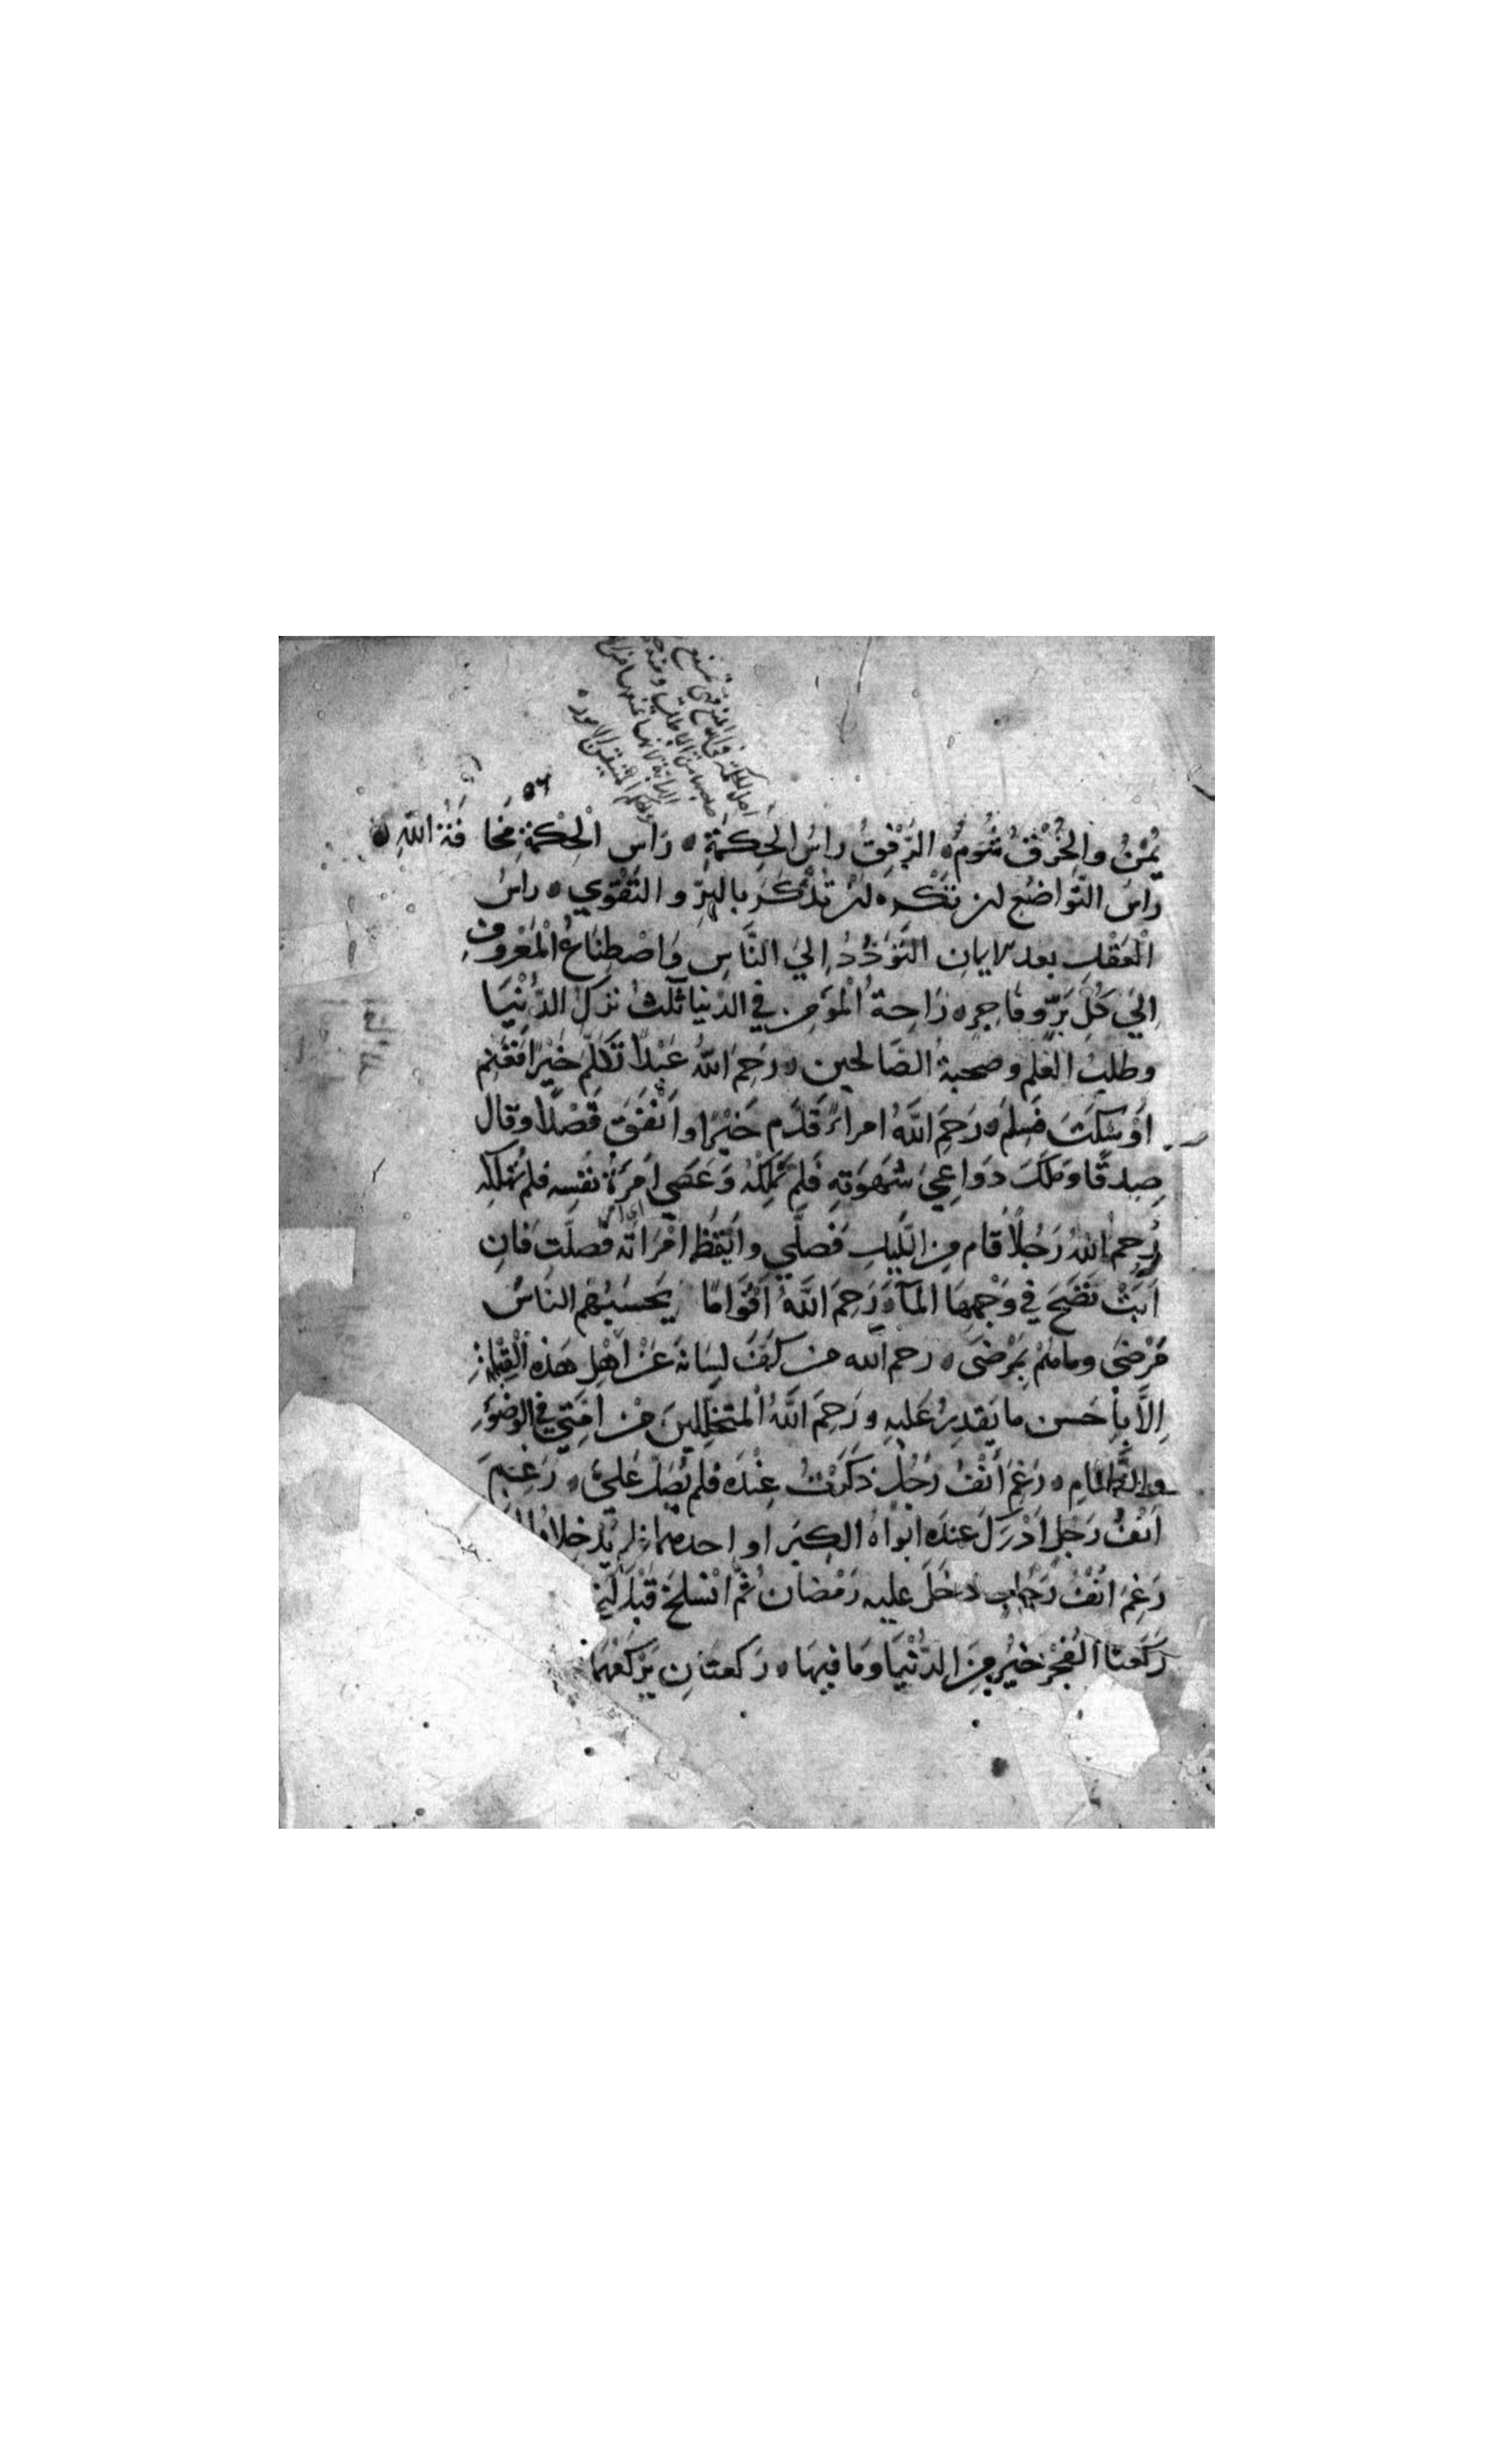 ٥٦
يُمْنٌ والخُرْقُ شُومٌ ٥ الرِّفْقُ راسُ الحِكمَةِ ٥ رَاس الْحِكْمَةِ مَخَا فَةُ اللّهِ ٥
راسُ التَّواضُع لن تكْره لنْ تُذْكَرَ بالبِرِّ و التَقْوي ٥ راسُ
الْعَقْلِ بعد الايمانِ التَّوَدُّدُ اِليَ النَّاسِ وَاصْطِنَاعُ الْمَعْرُوفِ
اِليَ كُلِّ بَرٍّ وفَاجِرٍ ٥ رَاحةُ الْمُؤمِنِ في الدنيا ثلثُ تركُ الدُّنْيَا
وطلبُ العِلم وصحبةُ الصَّالحين ٥ رَحِمَ اللّهُ عَبْداً تكَلَّم خَيْراً فَغَنِم
اَوْ سَكَتَ فَسَلِمَ ٥ رَحِمَ اللّهُ امراءً قَدَّم خَيْرًا و اَنْفَقَ قَصْدًا وقال
صِدقًا ومَلَكَ دَوَاعِيَ شَهْوَتِهِ فَلم تَمْلِكْهُ وَعَصَي اَمِرَةَ نَفسِه فلم تَملكه
رَحِم اللّهُ رَجُلًا قام مِن اللَّيلِ فَصلَّي و اَيْقَظَ امْرَاتَه فَصلَّت فَان
اَبَتْ نَضَحَ في وَجْهِهَا المآءَ ٥ رَحِمَ اللّهُ اَقْوَامًا يَحسَبُهُم الناسُ
مَرْضَي وما هُمْ بِمَرْضَي ٥ رحم الله من كَفَّ لِسَانهَ عَنْ اَهْلِ هَذه الْقِبْلةِ
اِلَّا بِاَحسن ما يَقدِرُ عَليهِ ٥ رَحِمَ اللّهُ الْمتخلِّلينَ مِن اُمَّتي في الوُضُوءِ
والطَّعَامِ ٥ رَغِمَ اَنْفُ رَجُلٍ ذكَرْتُ عِنْدَه فلم يُصَلِّ عَليَّ ٥ رَغِمَ
اَنفُ رَجُلٍ ادْرَكَ عندَه ابواهُ الكِبَرَ او احدهما لم يُدخِلاهُ
رَغِمَ انْفُ رَجُلٍ دخَلَ عليه رَمْضان ثُمَّ انْسلَخَ قَبْلَ
رَكعتا الفَجْرِ خَيْرٌ مِنَ الدُّنْيَا وَمَا فِيهَا ٥ رَكعتانِ يَرْكَعُهُمَا